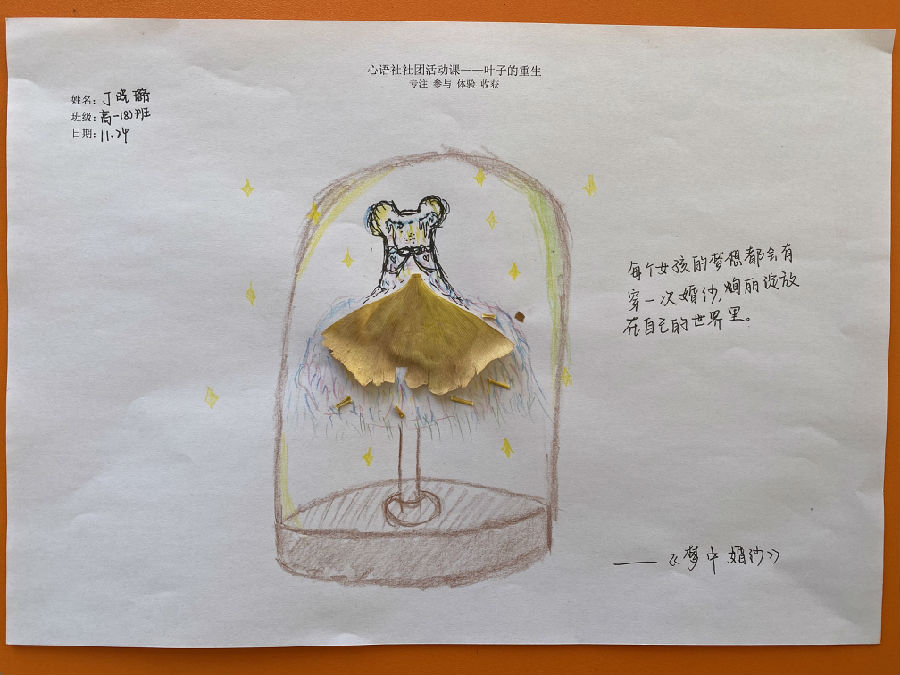 心语社社团活动课——叶子的重生
专注 参与 体验 收获
姓名：丁晓
班级：高一(8)班
日期：11.24
每个女孩的梦想都会有
穿一次婚沙，绚丽绽放
在自己的世界里。
——《梦中婚沙》